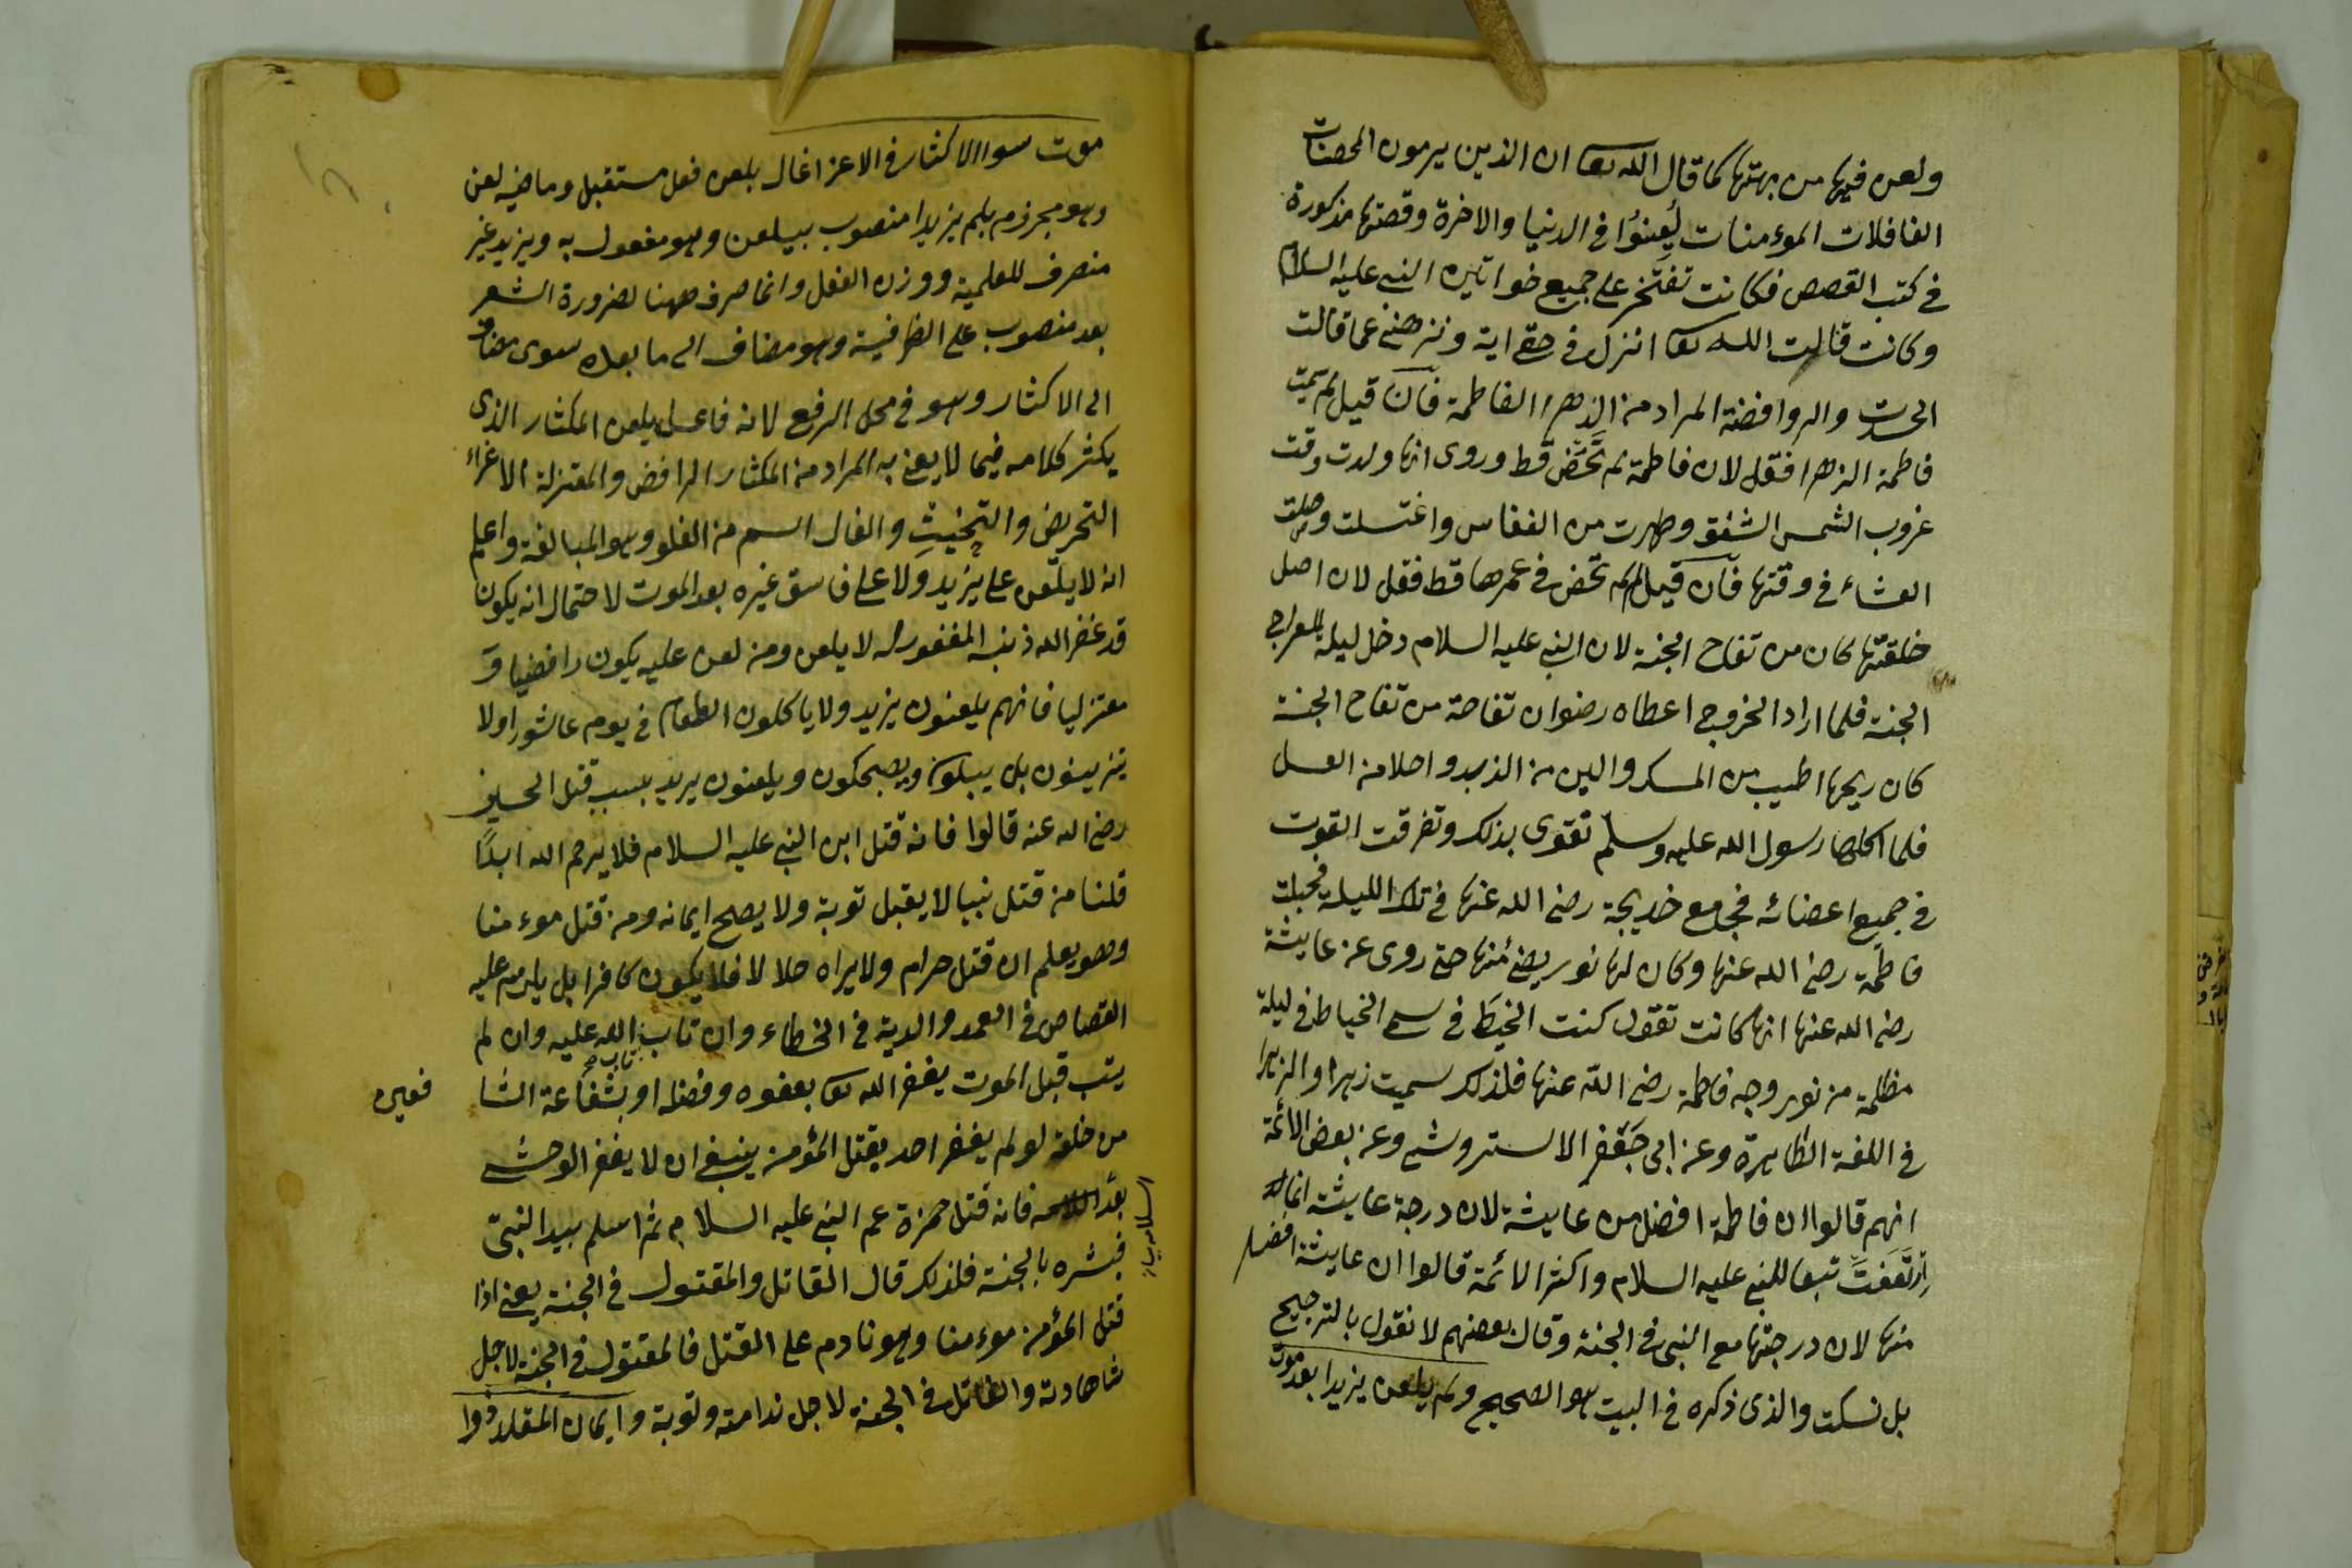 ولعن فيها من بهتها كما قال الله تعا ان الذين يرمون المحصنات
الغافلات الموءمنات لُعِنوُا في الدنيا والاخرة وقصتها مذكورة
في كتب القصص فكانت تفتخر على جميع خواتين النبي عليه السلام
وكانت قالت الله تعا انزل في حقي اية ونزهني عما قالت
والروافضة المراد من الزهرا الفاطمة فان قيل لم سميت
فاطمة الزهرا فقل لان فاطمة لم تحَض قط وروى انها ولدت وقت
غروب الشمس الشفق وطهرت من النفاس واغتسلت وصلت
العشاء في وقتها فان قيل لم لم تحض في عمرها قط فقل لان اصل
خلقتها كان من تفاح الجنة لان النبي عليه السلام دخل ليلة المعراج
الجنة فلما اراد الخروج اعطاه رضوان تفاحة من تفاح الجنة
كان ريحها اطيب من المسك والين من الزبد واحلا من العسل
فلما اكلها رسول الله عليه وسلم تقوى بذلك وتفرقت القوت
في جميع اعضائه فجامع خديجة رضى الله عنها في تلك الليلة فحبلت
فاطمة رضى الله عنها وكان لها نور يضئ منها حتى روى عن عايشة
رضى الله عنها انها كانت تقول كنت الخيط في سم الخياط في ليلة
مظلمة من نور وجه فاطمة رضى الله عنها فلذلك سميت زهرا والزهرا
في اللغة الظاهرة وعن ابى جعَفر الاستروشي وعن بعض الائمة
انهم قالوا ان فاطمة افضل من عايشة لان درجة عايشة انما
ارتَفعَت تبعا للنبي عليه السلام واكثر الائمة قالوا ان عايشة افضل
منها لان درجتها مع النبي في الجنة وقال بعضهم لا نقول بالترجيح
بل نسكت والذى ذكره في البيت هو الصحيح ولم يلعن يزيدا بعد موت
موت سوا الاكثار في الاعزاغال يلعن فعل مستقبل وماضيه لعن
وهو مجزوم بلم يزيدا منصوب بيلعن وهو مفعول به ويزيد غير
منصرف للعلمية ووزن الفعل وانما صرف ههنا لضرورة الشعر
بعد منصوب على الظرفية وهو مضاف الى ما بعده سوى مضاف
الى الاكثار وهو في محل الرفع لانه فاعل يلعن المكثار الذى
يكثر كلامه فيما لا يعنى به المراد من المكثار الرافض والمعتزلة الاغراء
التحريض والغال اسم من الغلو وهو المبالغة واعلم
انه لا يلعن على يزيد ولا على فاسق غيره بعد الموت لاحتمال انه يكون
قد غفر الله ذنبه المغفور له لا يلعن ومن لعن عليه يكون رافضيا وَ
معتزليا فانهم يلعنون يزيد ولا ياكلون الطعام في يوم عاشورا ولا
يتزينون بل يبكون ويضحكون ويلعنون يزيد بسبب قتل الحسين
رضى الله عنه قالوا فانه قتل ابن النبي عليه السلام فلا يرحم الله ابدًا
قلنا من قتل نبيا لا يقبل توبة ولا يصح ايمانه ومن قتل موءمنا
وهو يعلم ان قتل حرام ولا يراه حلالا فلا يكون كافرا بل يلزم عليه
القصاص في العمد والدية في الخطاء وان تاب تاب الله عليه وان لم
يتب قبل الموت يغفر الله تعا بعفوه وفضله او بشفاعة الشا
من خلقه لو لم يغفر احد يقتل المؤمن ينبغى ان لا يغفر الوحشى
فانه قتل حمزة عم النبي عليه السلام ثم اسلم بيد النبي
فبشره بالجنة فلذلك قال القاتل والمقتول في الجنة يعنى اذا
قتل المؤمن موءمنا وهو نادم على القتل فالمقتول في الجنة لاجل
شاهادته والقاتل في الجنة لاجل ندامته وتوبة وايمان المقلد ذوا